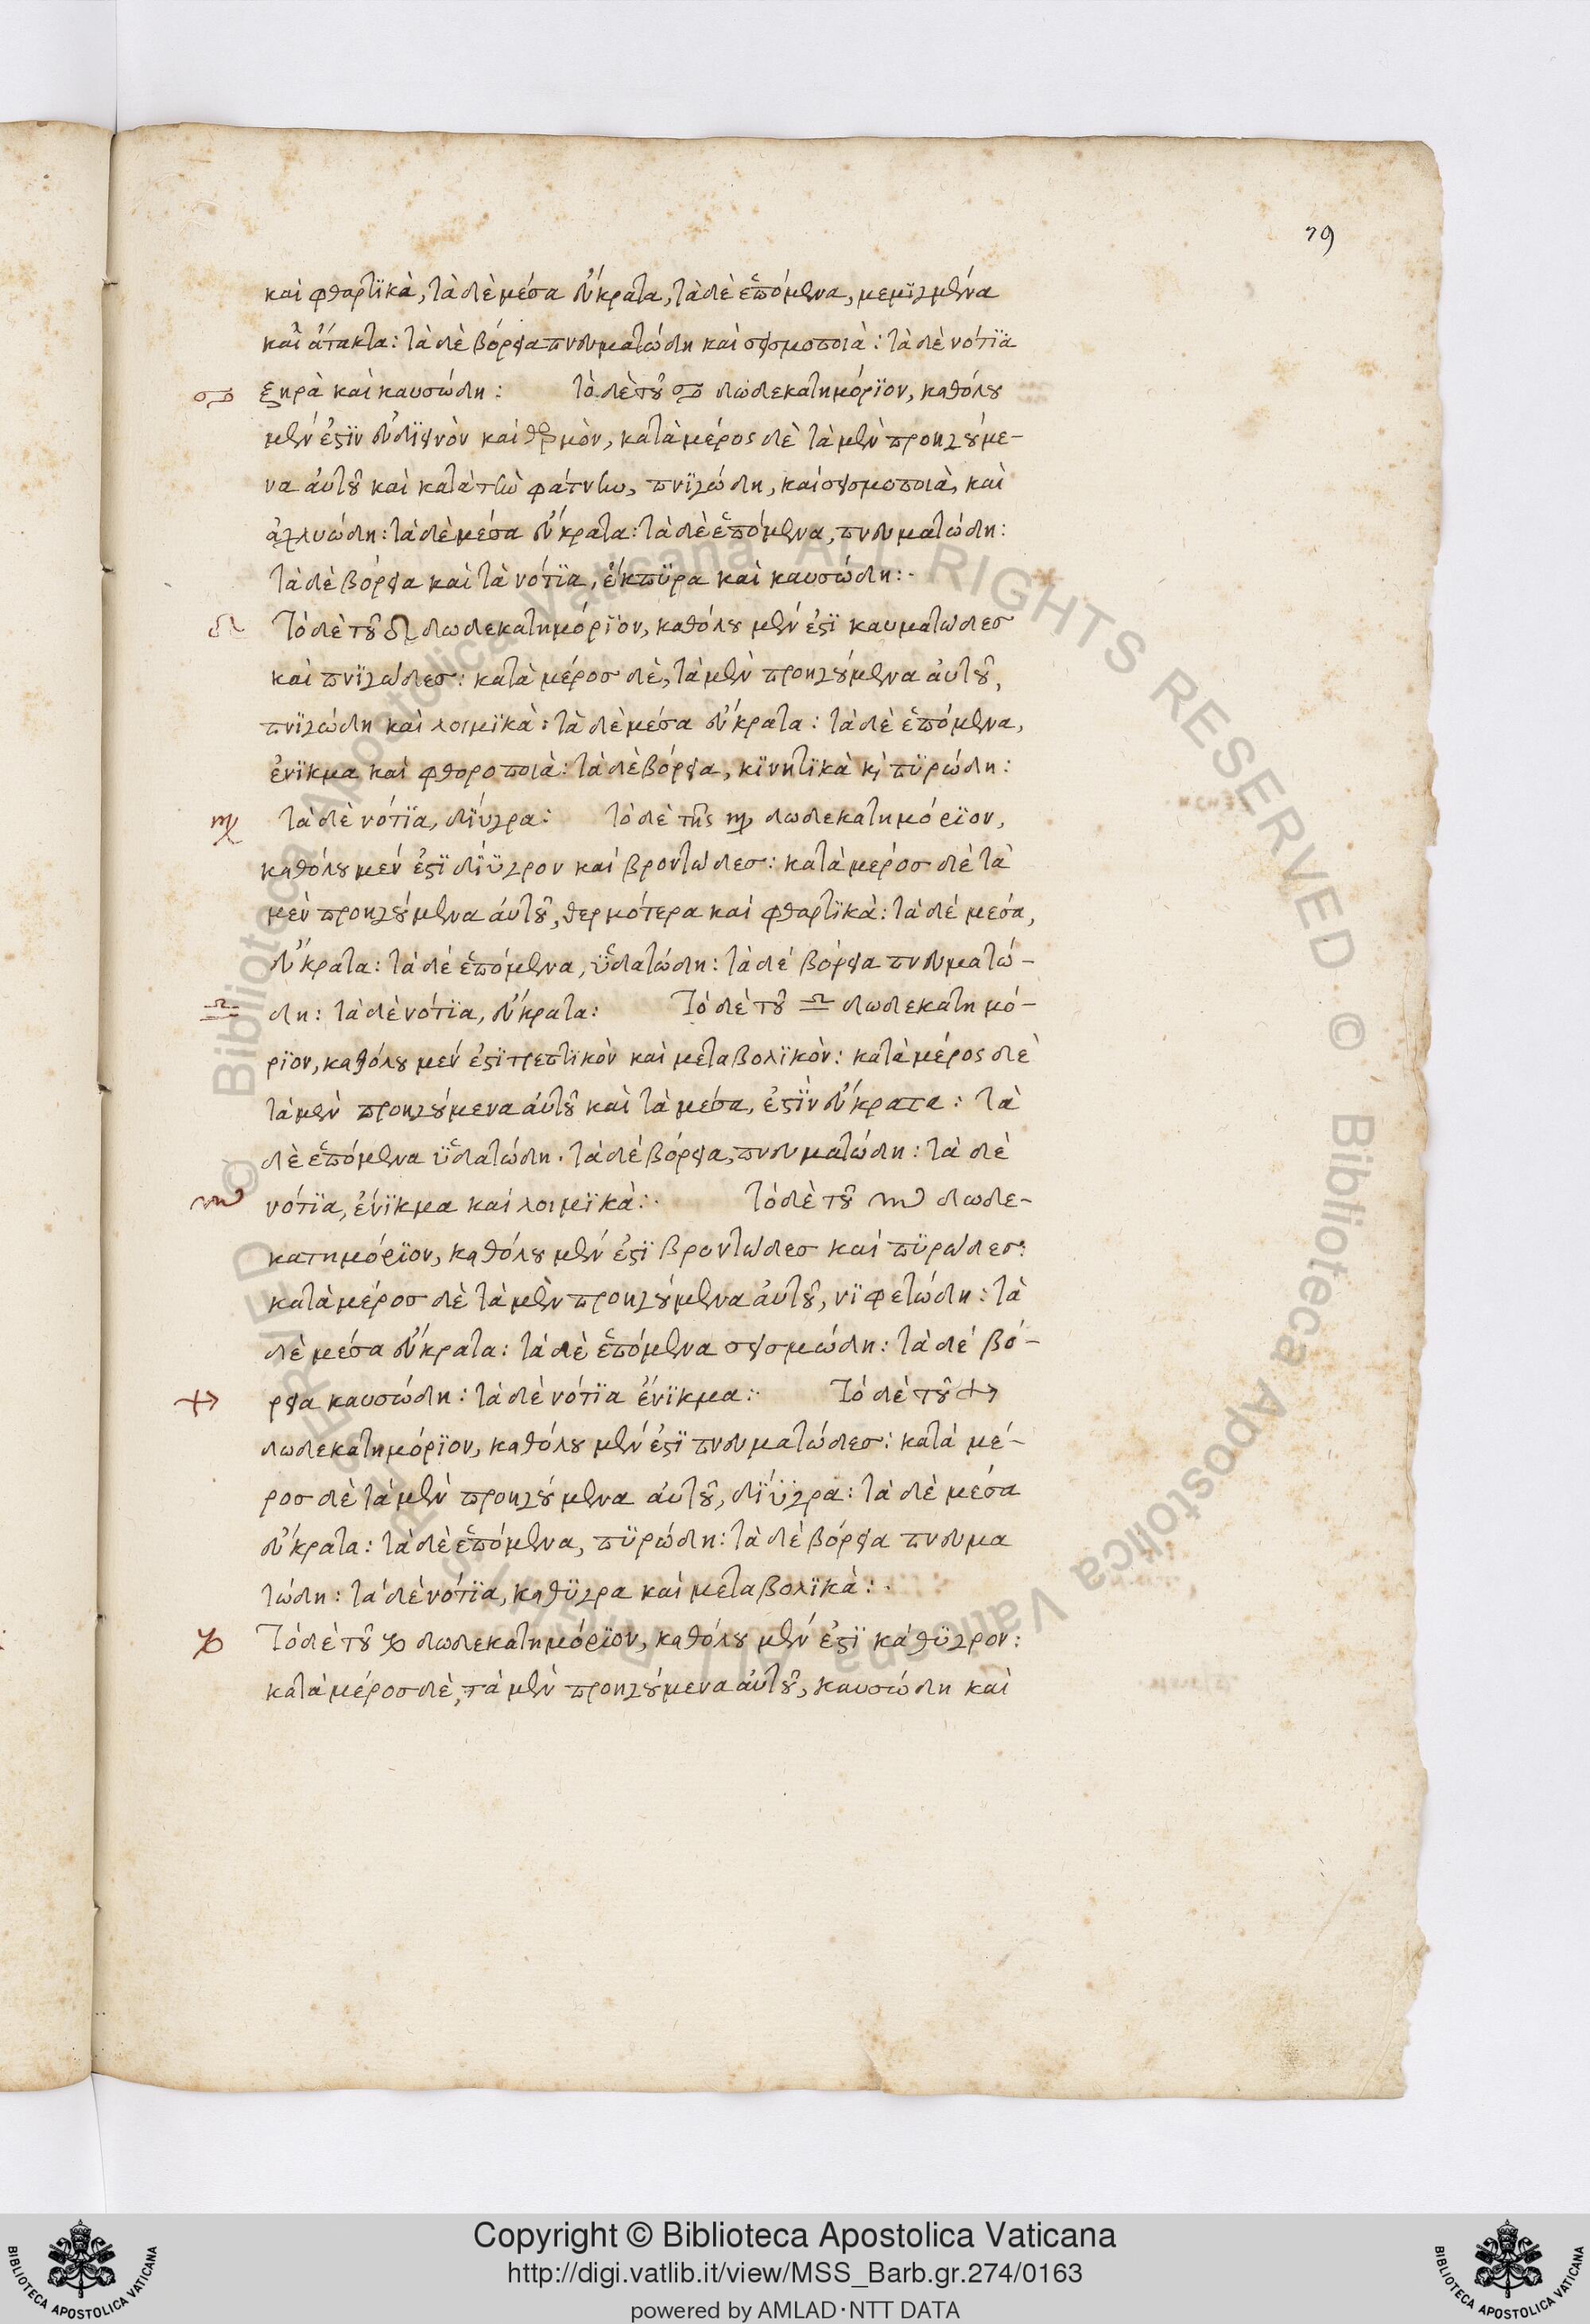 79
καὶ φθαρτϊκὰ, τὰ δὲ μέσα εὔκρατα, τὰ δὲ ἑπόμενα, μεμϊγμένα
καὶ ἄτακτα: τὰ δὲ βόρεια πνευματώδη καὶ σεισμοποιὰ: τὰ δὲ νότϊα
♋ ξηρὰ καὶ καυσώδη: τὸ δὲ τοῦ ♋ δωδεκατημόρϊον, καθόλου
μέν ἐστϊν εὐδϊεινὸν καὶ θερμὸν, κατὰ μέρος δὲ τὰ μὲν προηγούμε-
να αὐτοῦ καὶ κατὰ τὴν φάτνην, πνϊγώδη, καὶ σεισμοποιὰ, καὶ
ἀχλυώδη: τὰ δὲ μέσα εὔκρατα: τὰ δὲ ἑπόμενα, πνευματώδη:
τὰ δὲ βόρεια καὶ τὰ νότϊα, ἔκπϋρα καὶ καυσώδη:·
♌ Τὸ δὲ τοῦ ♌ δωδεκατημόρϊον, καθόλου μέν ἐστϊ καυματωδες
καὶ πνϊγώδες: κατὰ μέρος δὲ, τὰ μὲν προηγούμενα αὐτοῦ,
πνϊγώδη καὶ λοιμϊκὰ: τὰ δὲ μέσα εὔκρατα: τὰ δὲ ἑπόμενα,
ἐνϊκμα καὶ φθοροποιὰ: τὰ δὲ βόρεια, κϊνητϊκὰ κὶ πϋρώδη:
♍ τὰ δὲ νότϊα, δίϋγρα: τὸ δὲ τῆς ♍ δωδεκατημόρϊον,
καθόλου μέν ἐστϊ δϊϋγρον καὶ βροντώδες: κατὰ μέρος δὲ τὰ
μὲν προηγούμενα αὐτοῦ, θερμότερα καὶ φθαρτϊκὰ: τὰ δὲ μέσα,
εὔκρατα: τὰ δὲ ἑπόμενα, ὑδατώδη: τὰ δὲ βόρεια πνευματώ-
♎ δη: τὰ δὲ νότϊα, εὔκρατα: Τὸ δὲ τοῦ ♎ δωδεκατημό-
ρϊον, καθόλου μέν ἐστϊ τρεπτϊκὸν καὶ μεταβολϊκὸν: κατὰ μέρος δὲ
τὰ μὲν προηγούμενα αὐτοῦ καὶ τὰ μέσα, ἐστϊν εὔκρατα: τὰ
δὲ ἑπόμενα ὑδατώδη· τὰ δὲ βόρεια, πνευματώδη: τὰ δὲ
♏ νότϊα, ἐνϊκμα καὶ λοιμϊκὰ:· τὸ δὲ τοῦ ♏ δωδε-
κατημόρϊον, καθόλου μέν ἐστϊ βροντώδες καὶ πϋρώδες:
κατὰ μέρος δὲ τὰ μὲν προηγούμενα αὐτοῦ, νϊφετώδη: τὰ
δὲ μέσα εὔκρατα: τὰ δὲ ἑπόμενα σεισμώδη: τὰ δὲ βό-
♐ ρεια καυσώδη: τὰ δὲ νότϊα ἐνϊκμα:· Τὸ δὲ τοῦ ♐
δωδεκατημόρϊον, καθόλου μέν ἐστϊ πνευματώδες: κατὰ μέ-
ρος δὲ τὰ μὲν προηγούμενα αὐτοῦ, δίϋγρα: τὰ δὲ μέσα
εὔκρατα: τὰ δὲ ἑπόμενα, πϋρώδη: τὰ δὲ βόρεια πνευμα
τώδη: τὰ δὲ νότϊα, καθϋγρα καὶ μεταβολϊκὰ:·
♑ Τὸ δὲ τοῦ ♑ δωδεκατημόρϊον, καθόλου μέν ἐστϊ κάθϋγρον:
κατὰ μέρος δὲ, τὰ μὲν προηγούμενα αὐτοῦ, καυσώδη καὶ
© Biblioteca Apostolica Vaticana ALL RIGHTS RESERVED
© Biblioteca Apostolica Vaticana ALL RIGHTS RESERVED
Copyright © Biblioteca Apostolica Vaticana
http://digi.vatlib.it/view/MSS_Barb.gr.274/0163
powered by AMLAD·NTT DATA
BIBLIOTECA APOSTOLICA VATICANA
BIBLIOTECA APOSTOLICA VATICANA